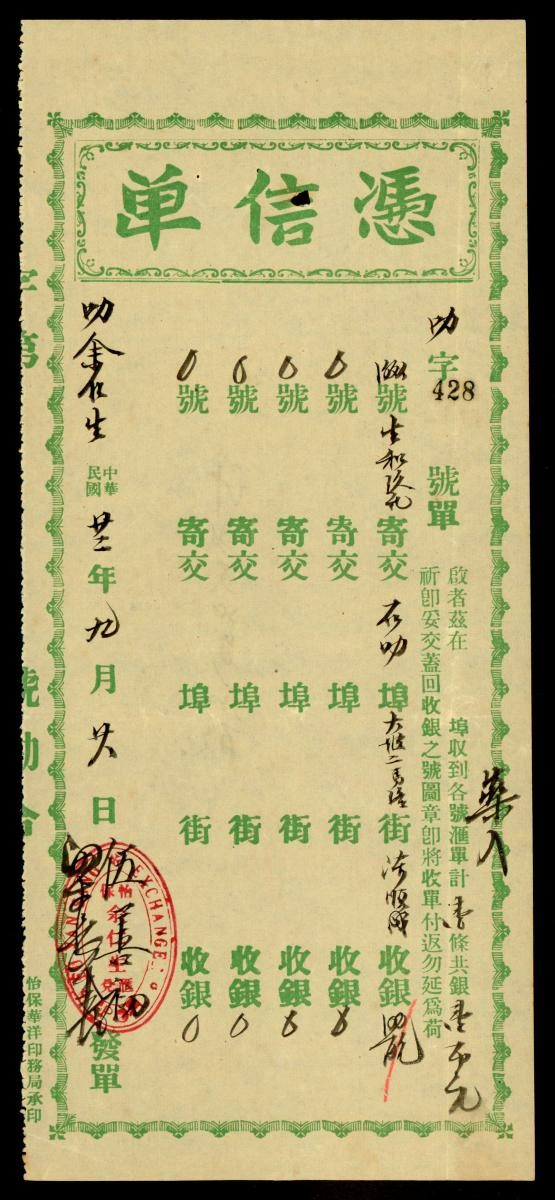 憑信单
叻字
428
號單
啟者茲在 埠收到各號滙單計 條共銀 壹百元
祈卽妥交蓋回收銀之號圖章卽將收單付返勿延爲荷
號 寄交 在叻 埠 大坡二馬路 街 收銀
0 號 寄交 埠 街 收銀 0
0 號 寄交 埠 街 收銀 0
0 號 寄交 埠 街 收銀 0
0 號 寄交 埠 街 收銀 0
叻余仁生
中華民國 廿三 年 九 月 廿八 日 發單
EXCHANGE
怡保
余仁生
滙兌
字第 號勘合
怡保華洋印務局承印